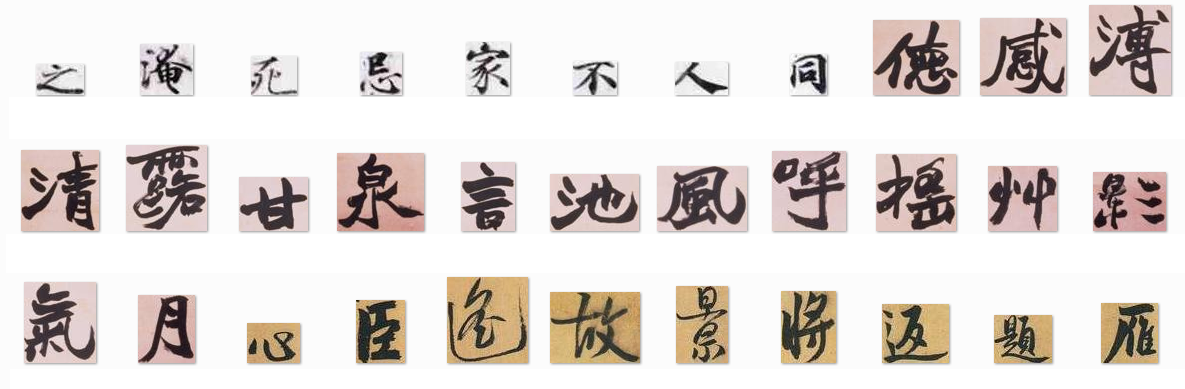 之淹死忌家不人同德感溥
清露甘泉言池風呼搖艸影
氣月心臣遙故景將返題雁